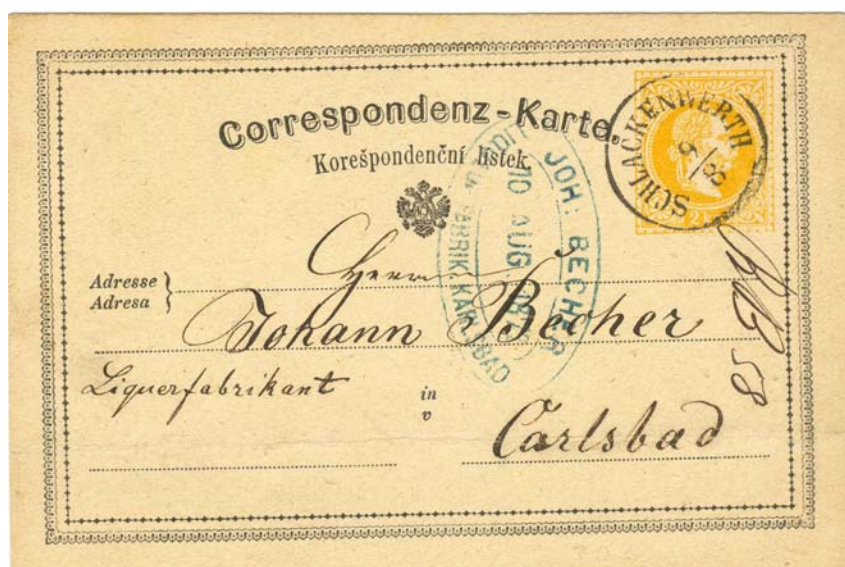 Correspondenz-Karte.
Korešpondenční lístek.
SCHLACKENWERTH
JOH: BECHER
10 AUG.
FABRIK KARLSBAD
Adresse
Adresa
Herrn
Johann Becher
Liquerfabrikant
in
v
Carlsbad